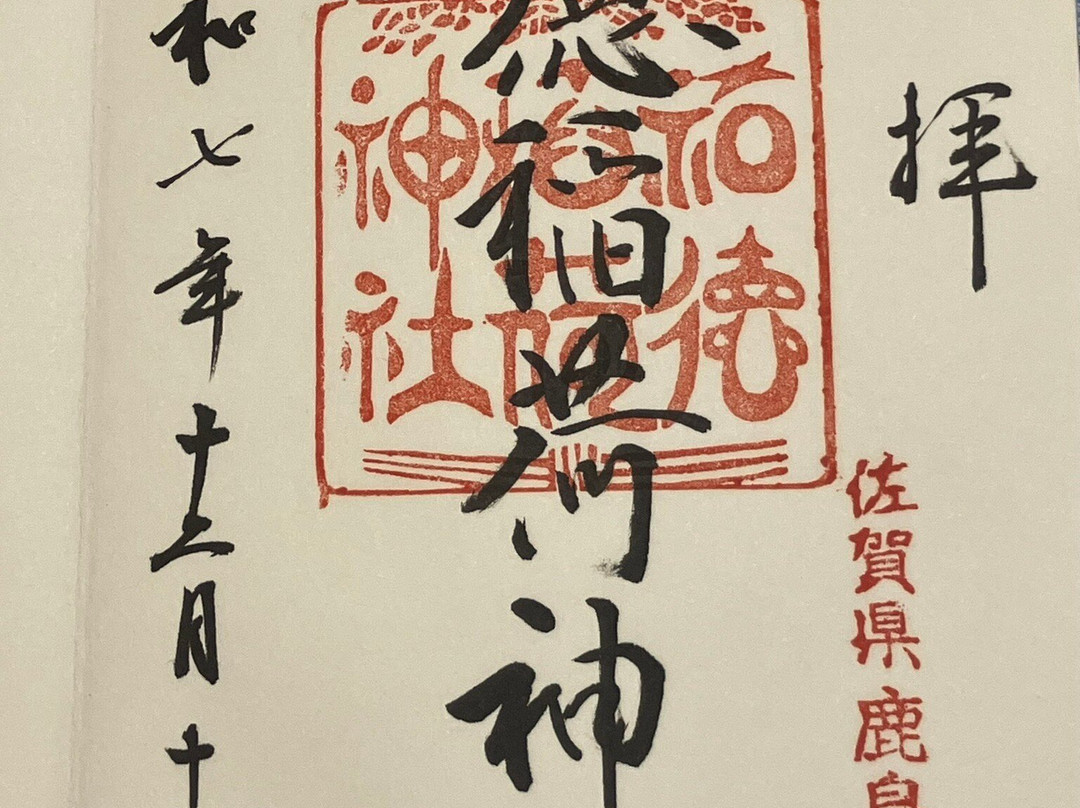 奉拝
佐賀県鹿島
祐徳稲荷神社
徳稲荷神
和七年十二月十